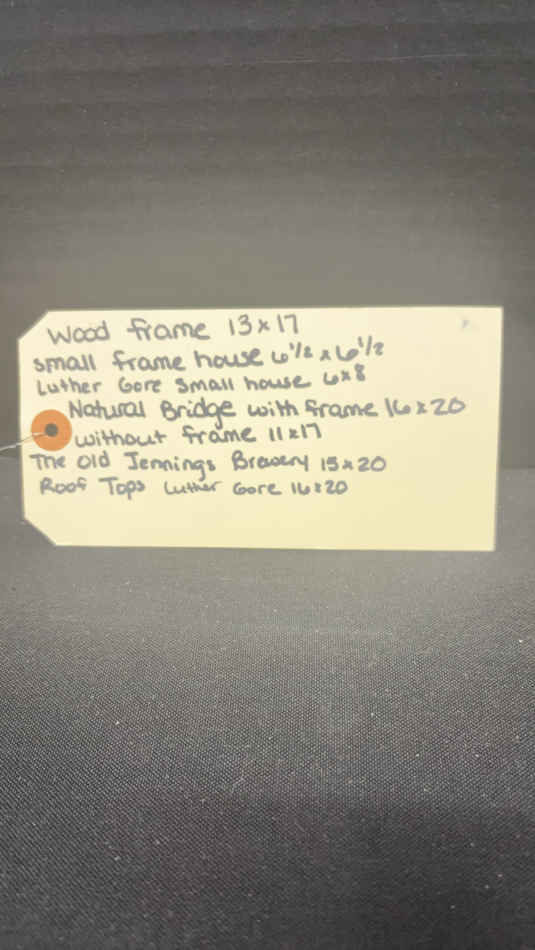 Wood frame 13x17
small frame house 6 1/2 x 6 1/2
Luther Gore Small house 6x8
Natural Bridge with frame 16x20
without frame 11x17
The Old Jennings Brewery 15x20
Roof Tops Luther Gore 16x20